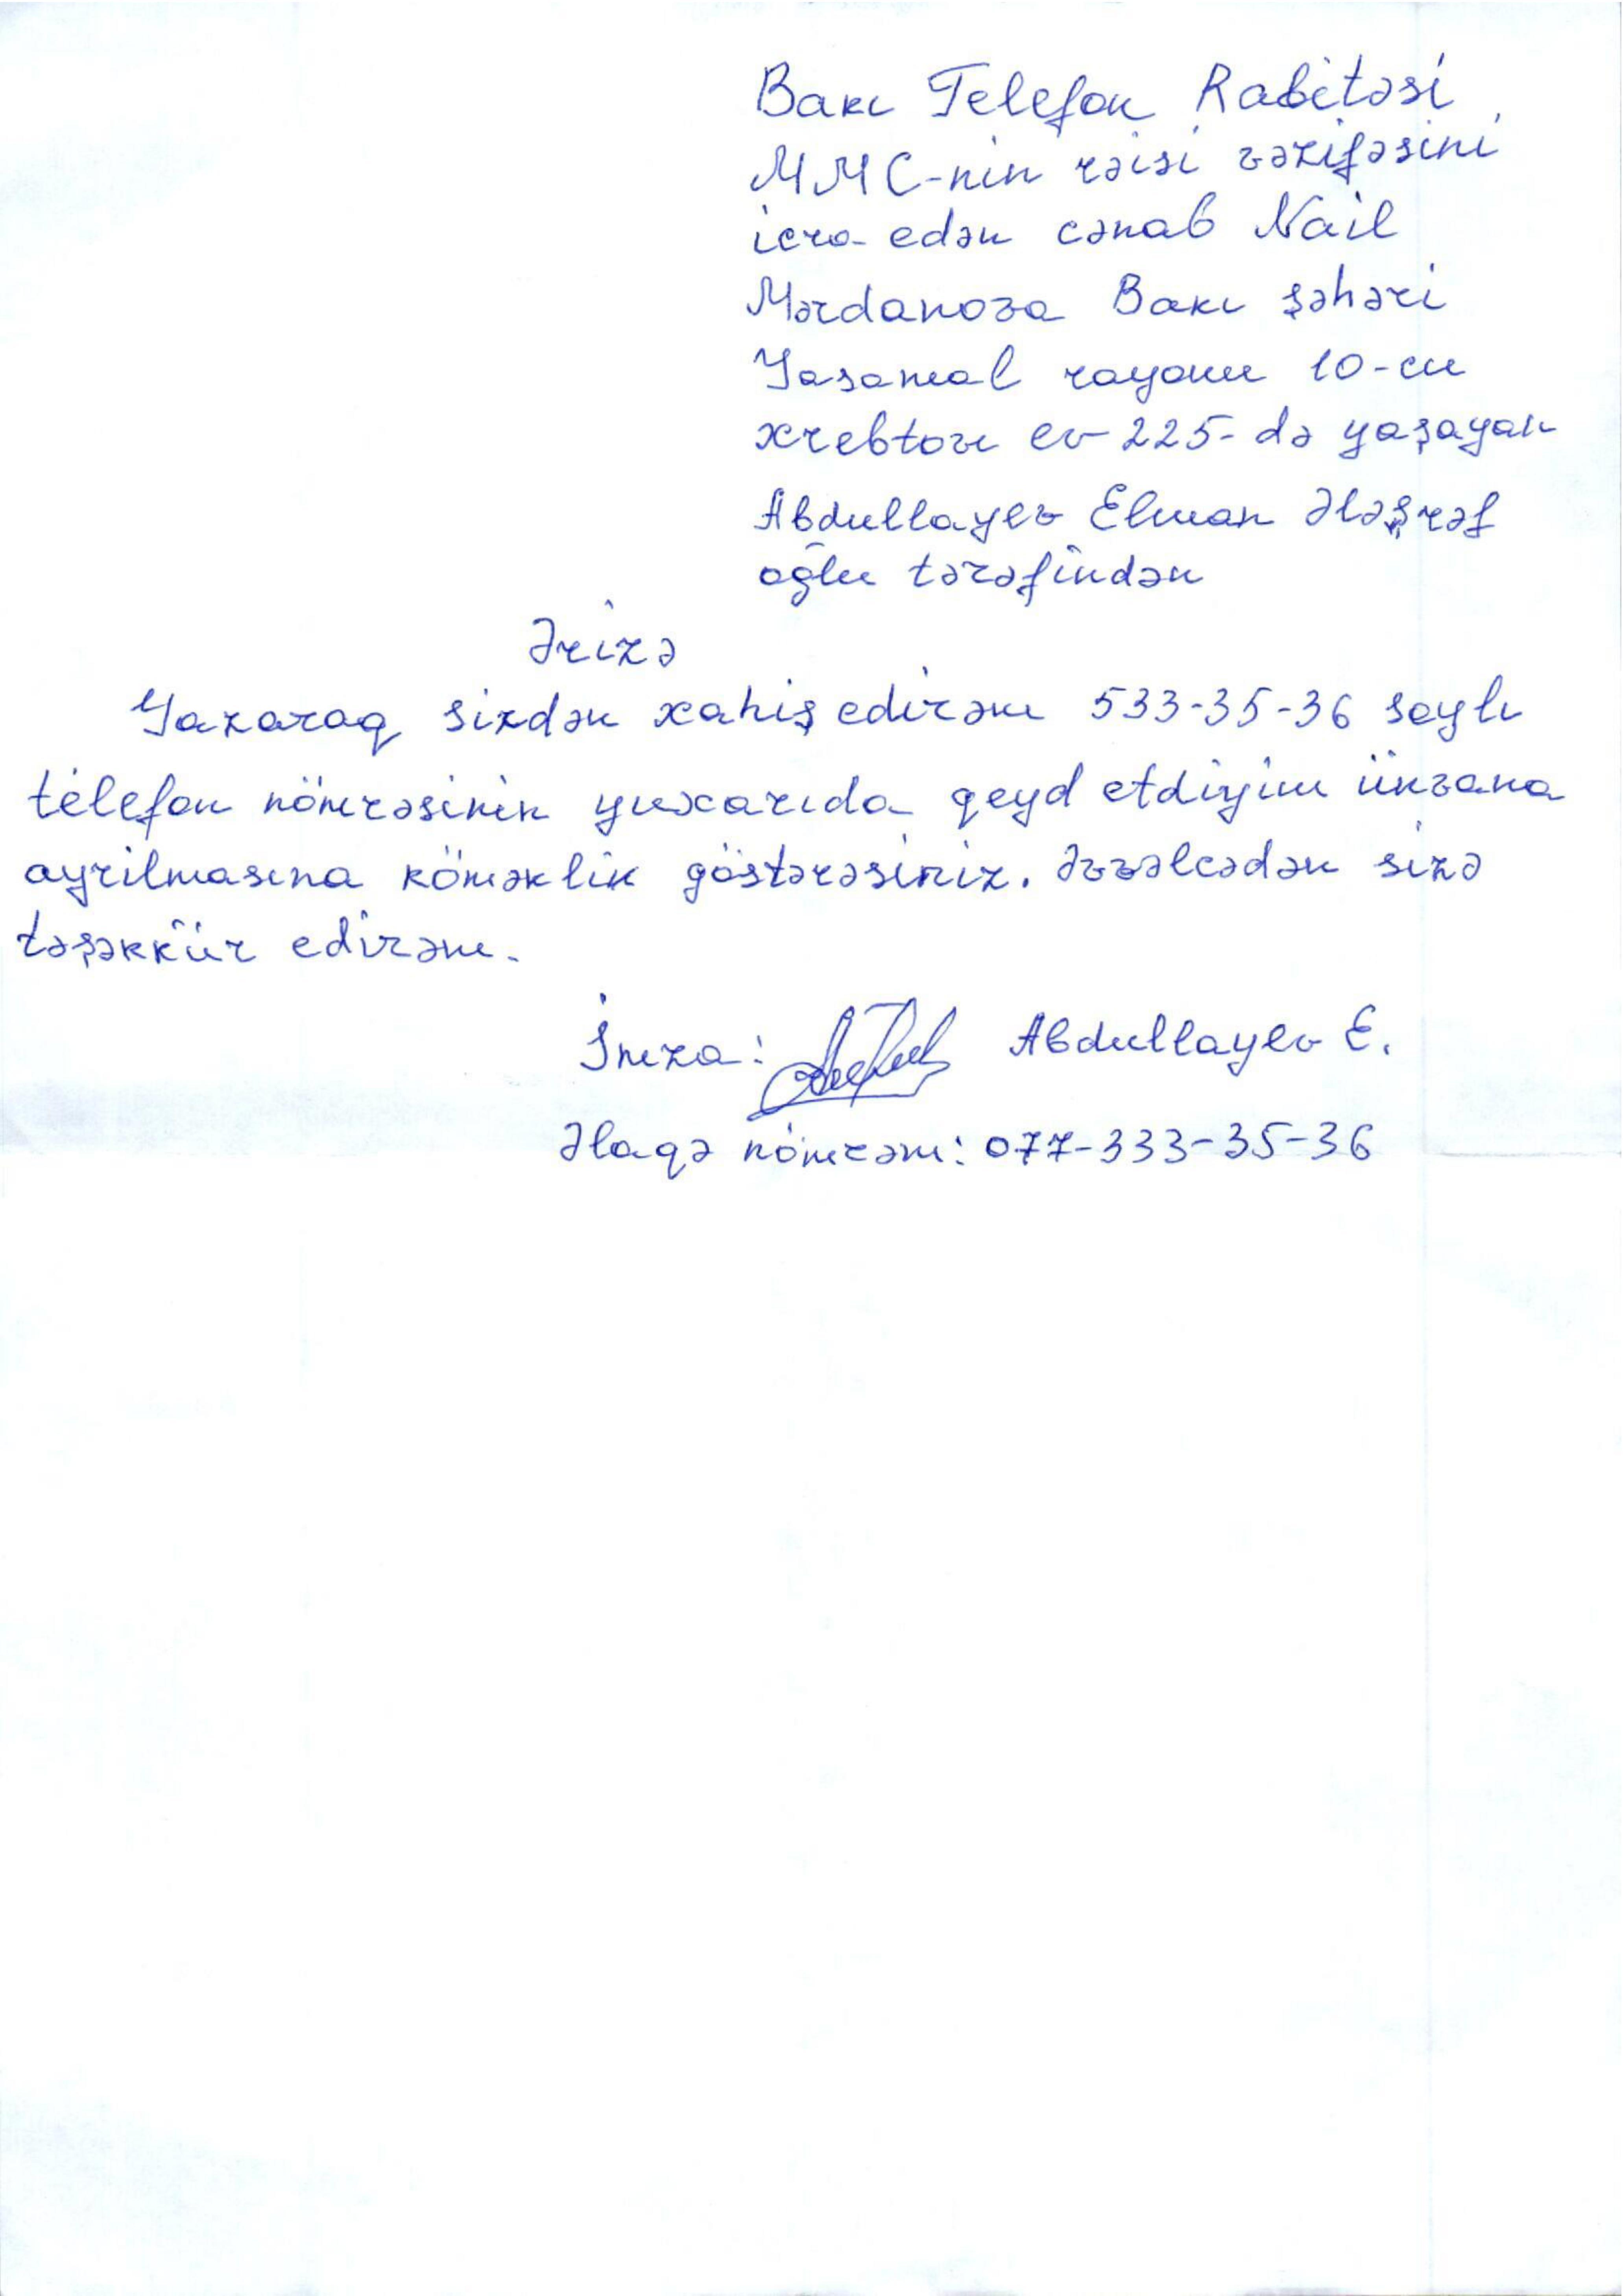 Bakı Telefon Rabitəsi
MMC-nin rəisi vəzifəsini
icra edən cənab Nail
Mərdanova Bakı şəhəri
Yasamal rayonu 10-cu
xrebtovı ev 225-də yaşayan
Abdullayev Elman Ələşrəf
oğlu tərəfindən
Ərizə
Yazaraq sizdən xahiş edirəm 533-35-36 saylı
telefon nömrəsinin yuxarıda qeyd etdiyim ünvana
ayrilmasına köməklik göstərəsiniz. Əvvəlcədən sizə
təşəkkür edirəm.
İmza: Abdullayev E.
Əlaqə nömrəm: 077-333-35-36